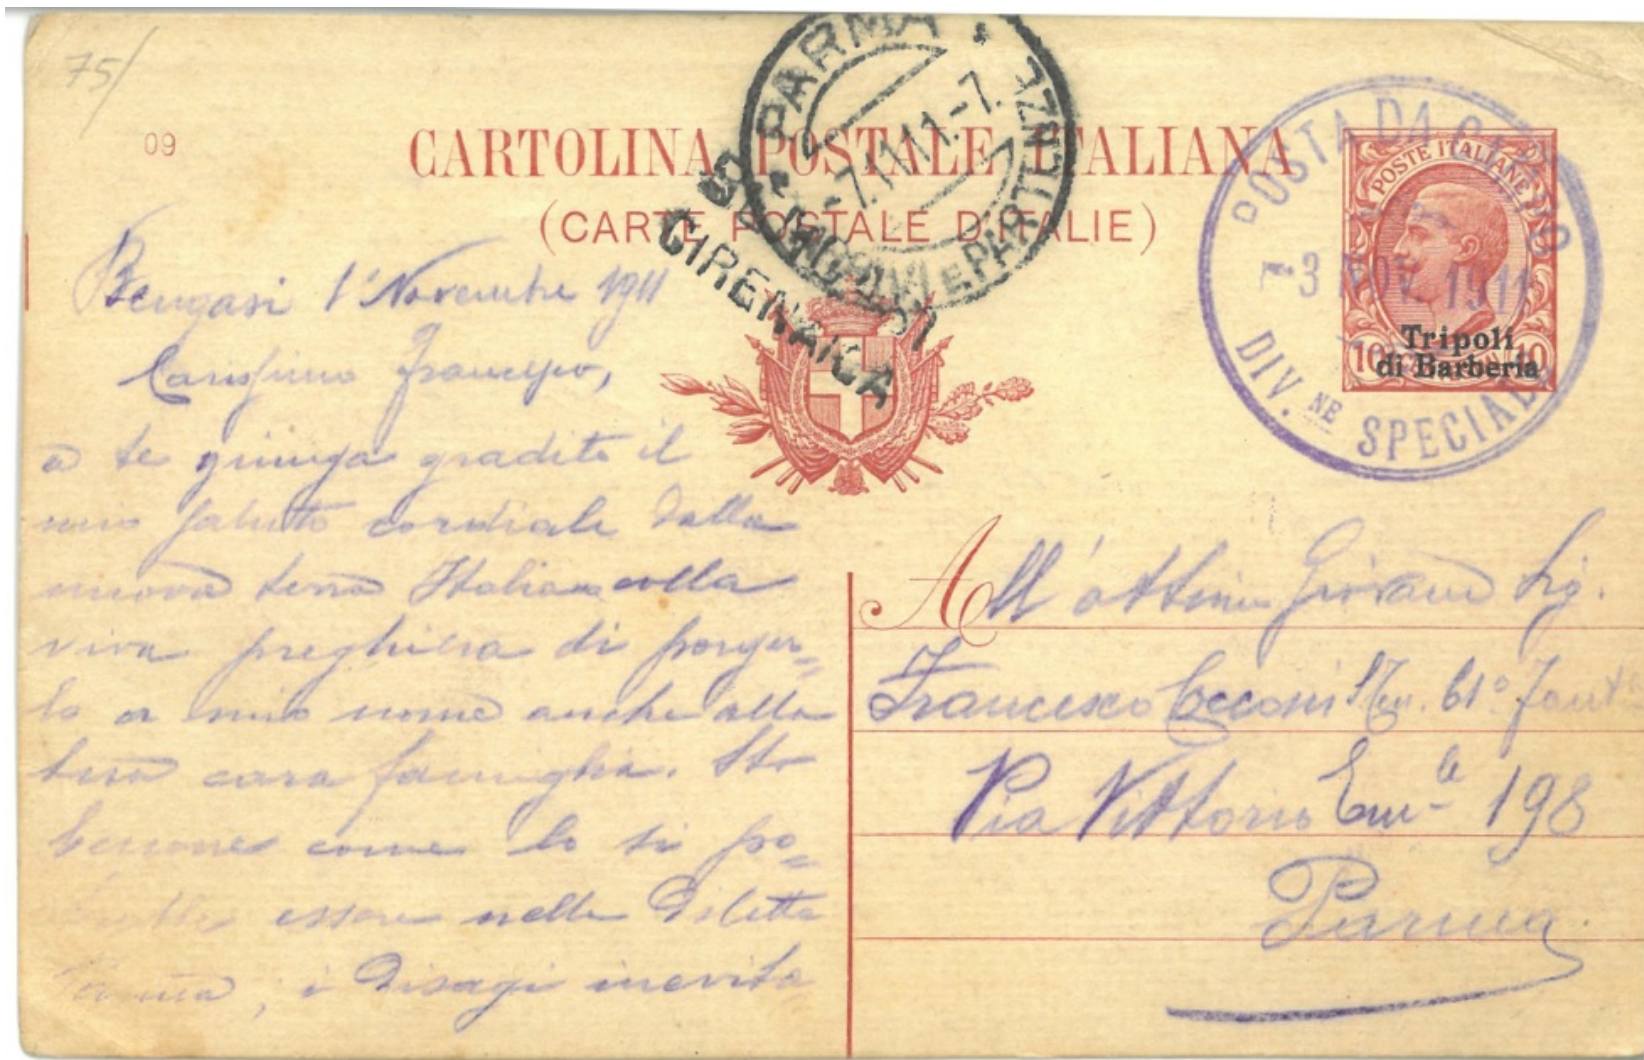 75/
09
CARTOLINA POSTALE ITALIANA
(CARTE POSTALE D'ITALIE)
PARMA
-7.11.11.-7.
E PARTENZE
CIRENAICA
POSTA DA CAMPO
-3 NOV. 1911
DIV.NE SPECIALE
POSTE ITALIANE
10 10
Tripoli
di Barberia
Bengasi 1° Novembre 1911
Carissimo Francesco,
a te giunga gradito il
mio saluto cordiale dalla
nuova terra Italiana colla
viva preghiera di porger=
lo a mio nome anche alla
tua cara famiglia. Sto
benone come lo si po=
trebbe essere nella diletta
Parma, i disagi inevita=
All'ottimo Giovane Sig.
Francesco Cocconi STen. 61° Fant
Via Vittorio Em.le 198
Parma